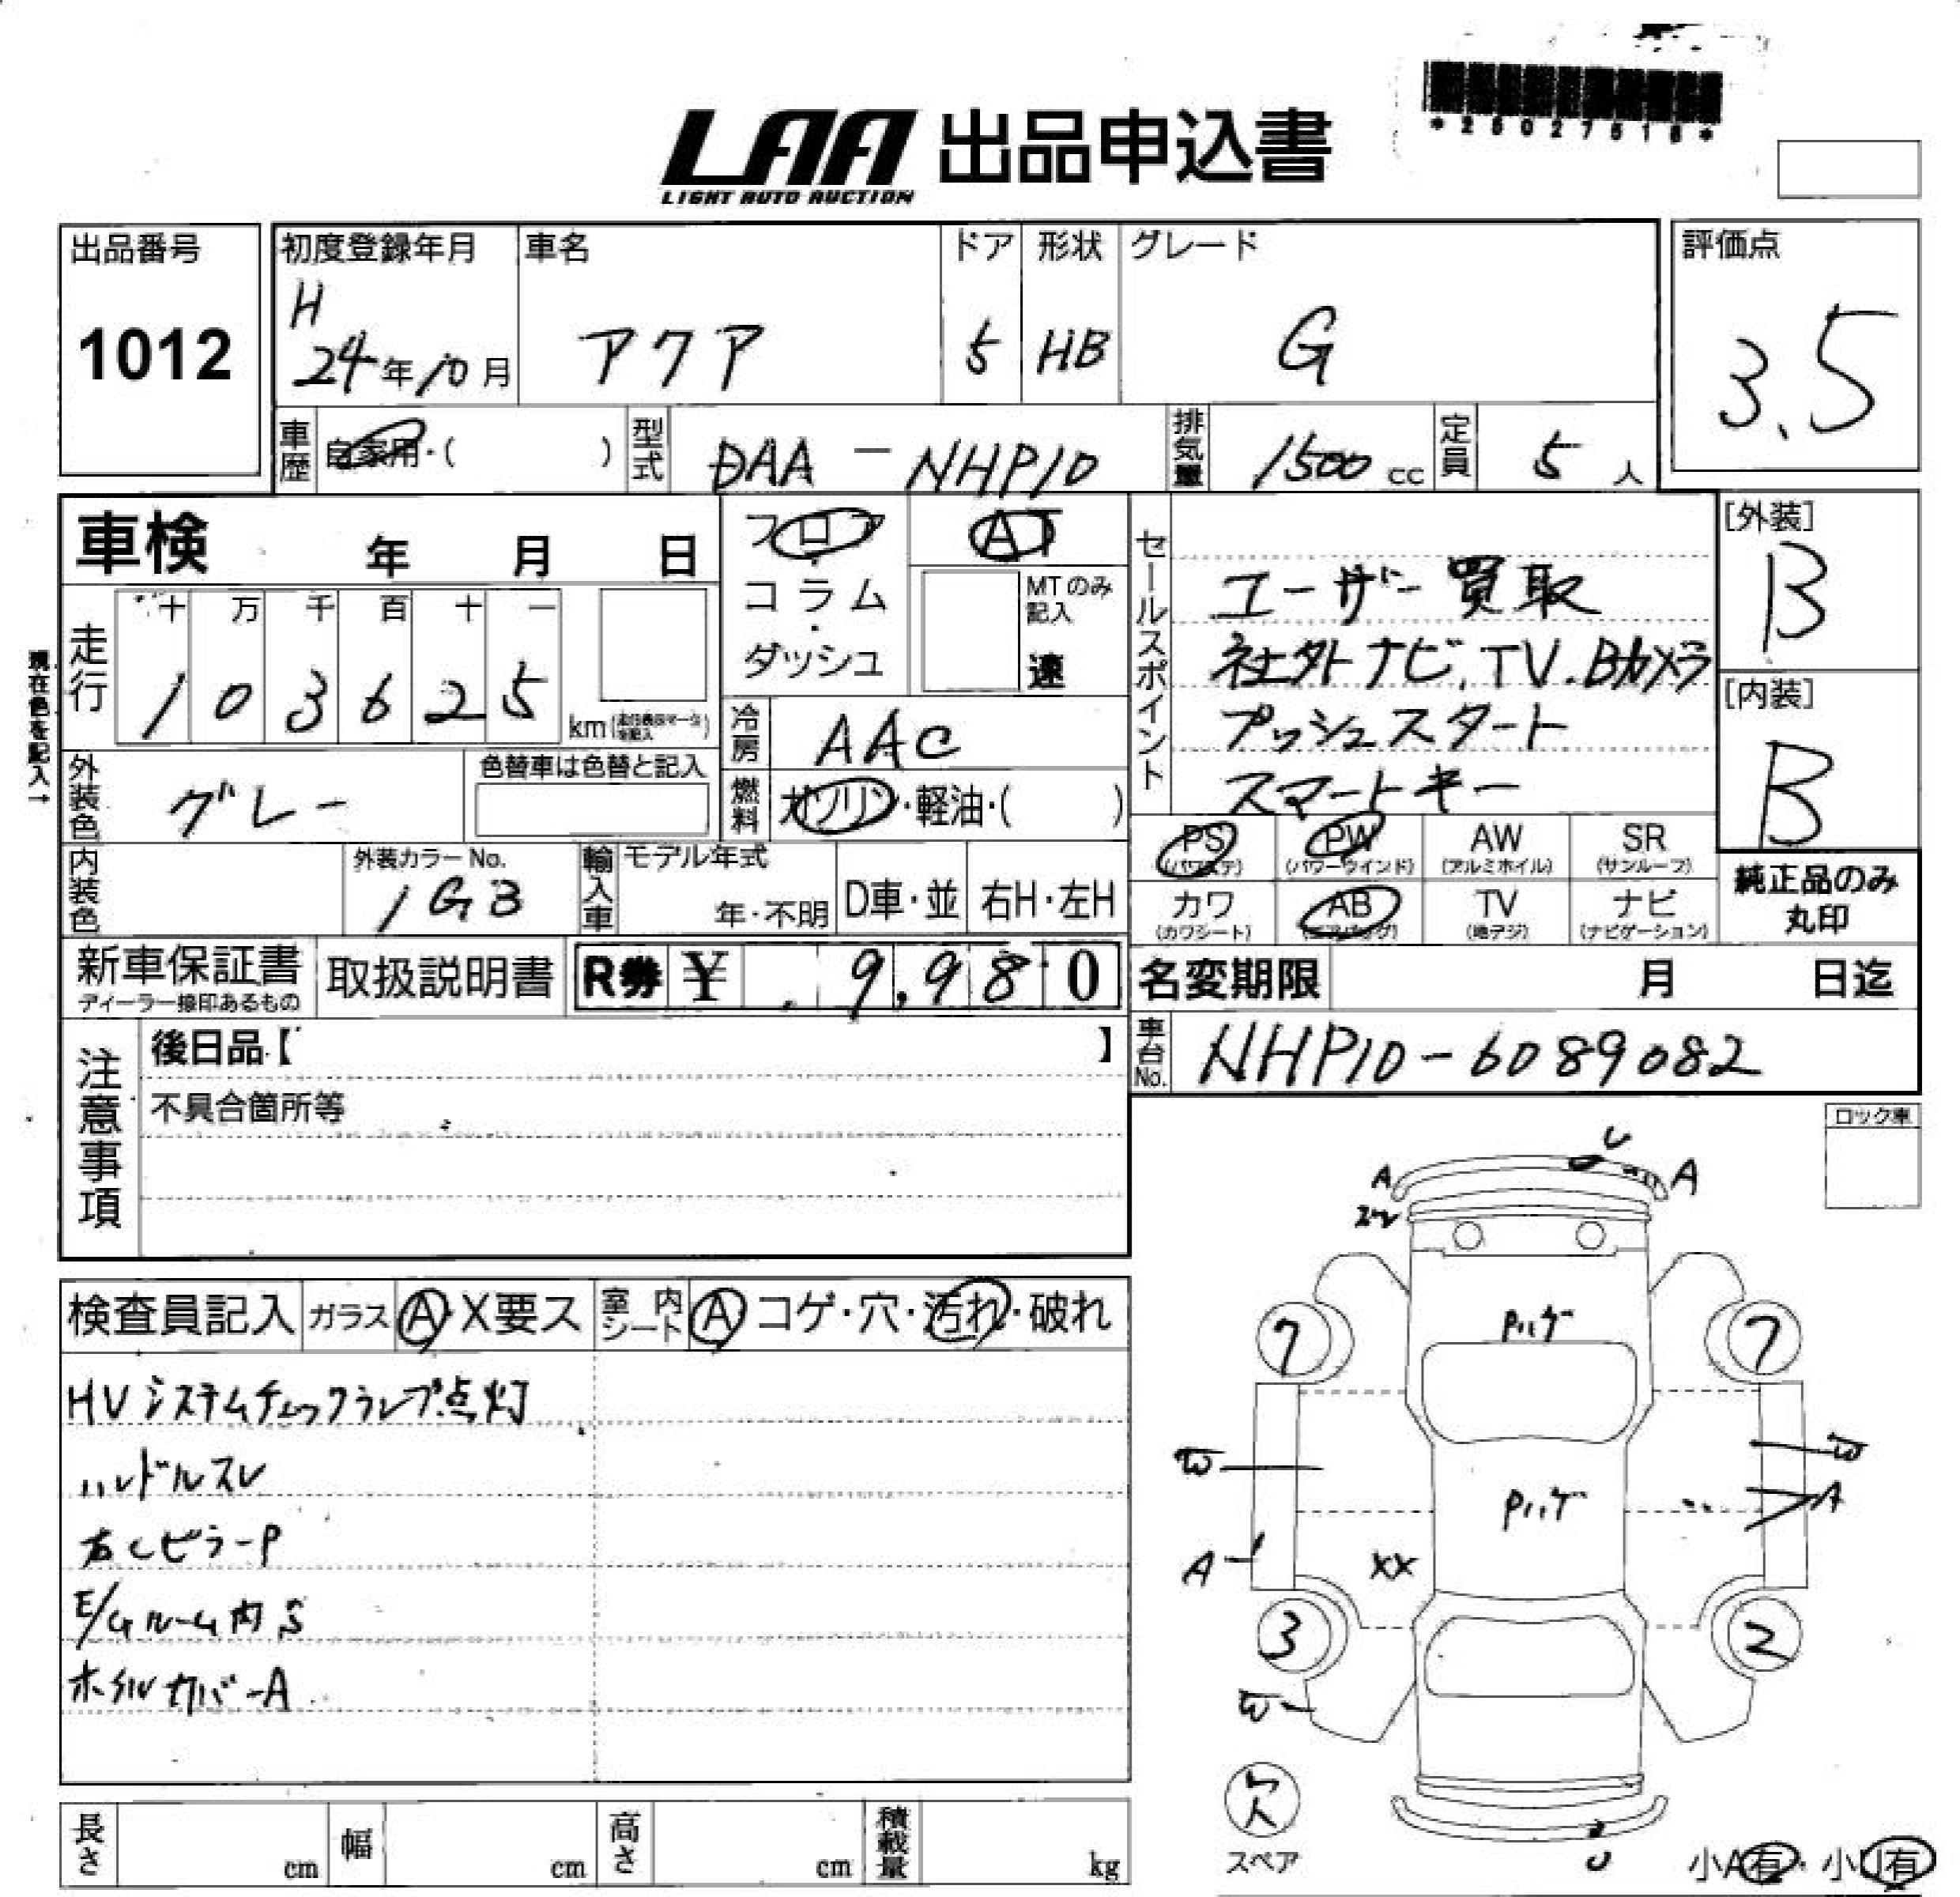 *25027518*
LAA 出品申込書
LIGHT AUTO AUCTION
出品番号
1012
初度登録年月
H
24年10月
車名
アクア
ドア
5
形状
HB
グレード
G
評価点
3.5
車歴
自家用・( )
型式
DAA - NHP10
排気量
1500 cc
定員
5 人
車検 年 月 日
フロア・コラム・ダッシュ
AT
MTのみ記入
速
セールスポイント
ユーザー買取
社外ナビ.TV.Bカメラ
プッシュスタート
スマートキー
[外装]
B
[内装]
B
現在色を記入→
走行
十 万 千 百 十 一
1 0 3 6 2 5
km
冷房
AAC
外装色
グレー
色替車は色替と記入
燃料
ガソリン・軽油・( )
内装色
外装カラーNo.
1G3
輸入車
モデル年式
年・不明
D車・並
右H・左H
PS (パワステ)
PW (パワーウインド)
AW (アルミホイル)
SR (サンルーフ)
カワ (カワシート)
AB (エアバッグ)
TV (地デジ)
ナビ (ナビゲーション)
純正品のみ
丸印
新車保証書
ディーラー捺印あるもの
取扱説明書
R券 ¥ 9,980
名変期限 月 日迄
車台No.
NHP10-6089082
注意事項
後日品【 】
不具合箇所等
ロック車
検査員記入
ガラス A・X要ス
室内シート A コゲ・穴・汚れ・破れ
HVシステムチェックランプ点灯
ハンドルスレ
右Cピラー P
E/Gルーム内S
ホイルカバーA
U
A
A
Pハゲ
7
7
W
W
Pハゲ
A
A
XX
3
2
W
欠
スペア
U
小A有・小U有
長さ cm
幅 cm
高さ cm
積載量 kg